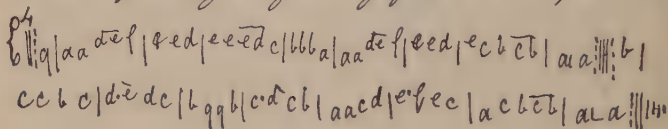 b 4 ||: g | a a d̅e̅ f | e e d | e e e̅d̅ c | b b b a | a a d̅e̅ f | e e d | e c b c̅b̅ | a a :||||: b |
c c b c | d·e d c | b g g b | c·d c b | a a c d | e·f e c | a c b c̅b̅ | a a :||